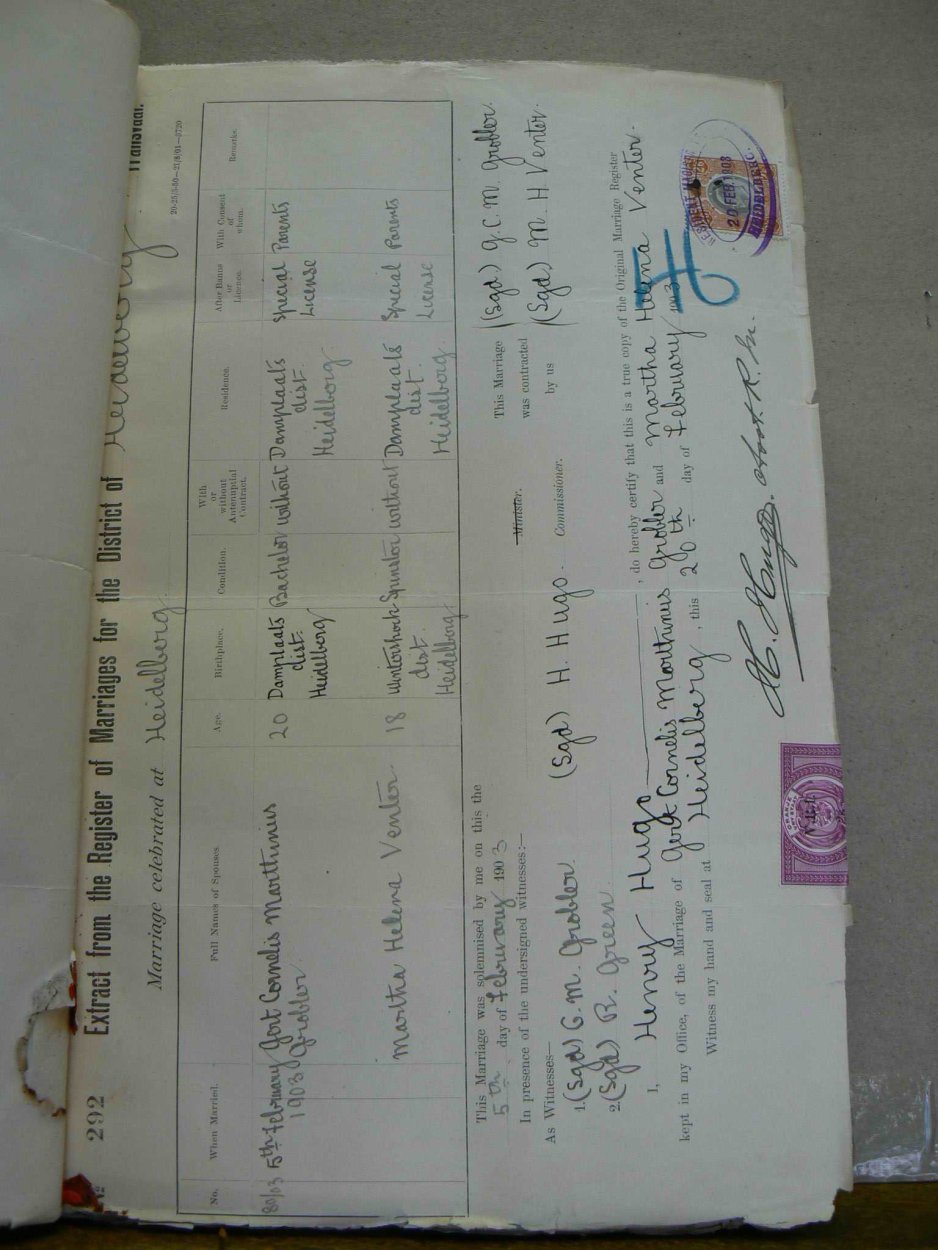 No 292 Extract from the Register of Marriages for the District of Heidelberg Transvaal.
20-25/3-50—21/8/01—0720
Marriage celebrated at Heidelberg
No. When Married. Full Names of Spouses. Age. Birthplace. Condition. With or without Antenuptial Contract. Residence. After Banns or Licence. With Consent of whom. Remarks.
80/03 5th February Gert Cornelis Marthinus 20 Damplaats Bachelor without Damplaats Special Parents
1903 Grobler dist. dist. License
Heidelberg Heidelberg
Martha Helena Venter 18 dist. Spinster without Damplaats Special Parents
Heidelberg dist. License
Heidelberg
This Marriage was solemnised by me on this the
5th day of February 1903
In presence of the undersigned witnesses:— Minister.
As Witnesses—
1. (Sgd) G. M. Grobler (Sgd) H. Hugo. Commissioner.
2. (Sgd) R. Green
This Marriage was contracted by us
(Sgd) G. C. M. Grobler.
(Sgd) M. H. Venter.
I, Henry Hugo, do hereby certify that this is a true copy of the Original Marriage Register
kept in my Office, of the Marriage of Gert Cornelis Marthinus Grobler and Martha Helena Venter.
Witness my hand and seal at Heidelberg, this 20th day of February 1903
H. Hugo. Asst. R. M.
RESIDENT MAGISTRATE
20 FEB 1903
HEIDELBERG.
V.R.I.